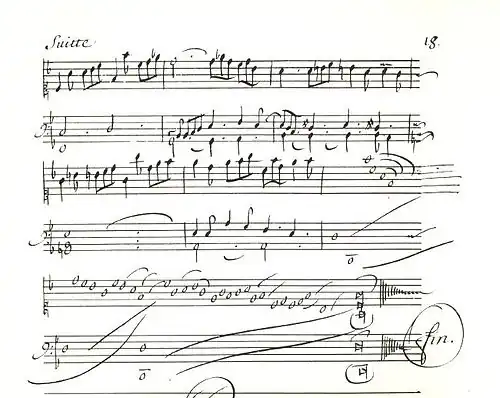 Suitte 18.
fin.